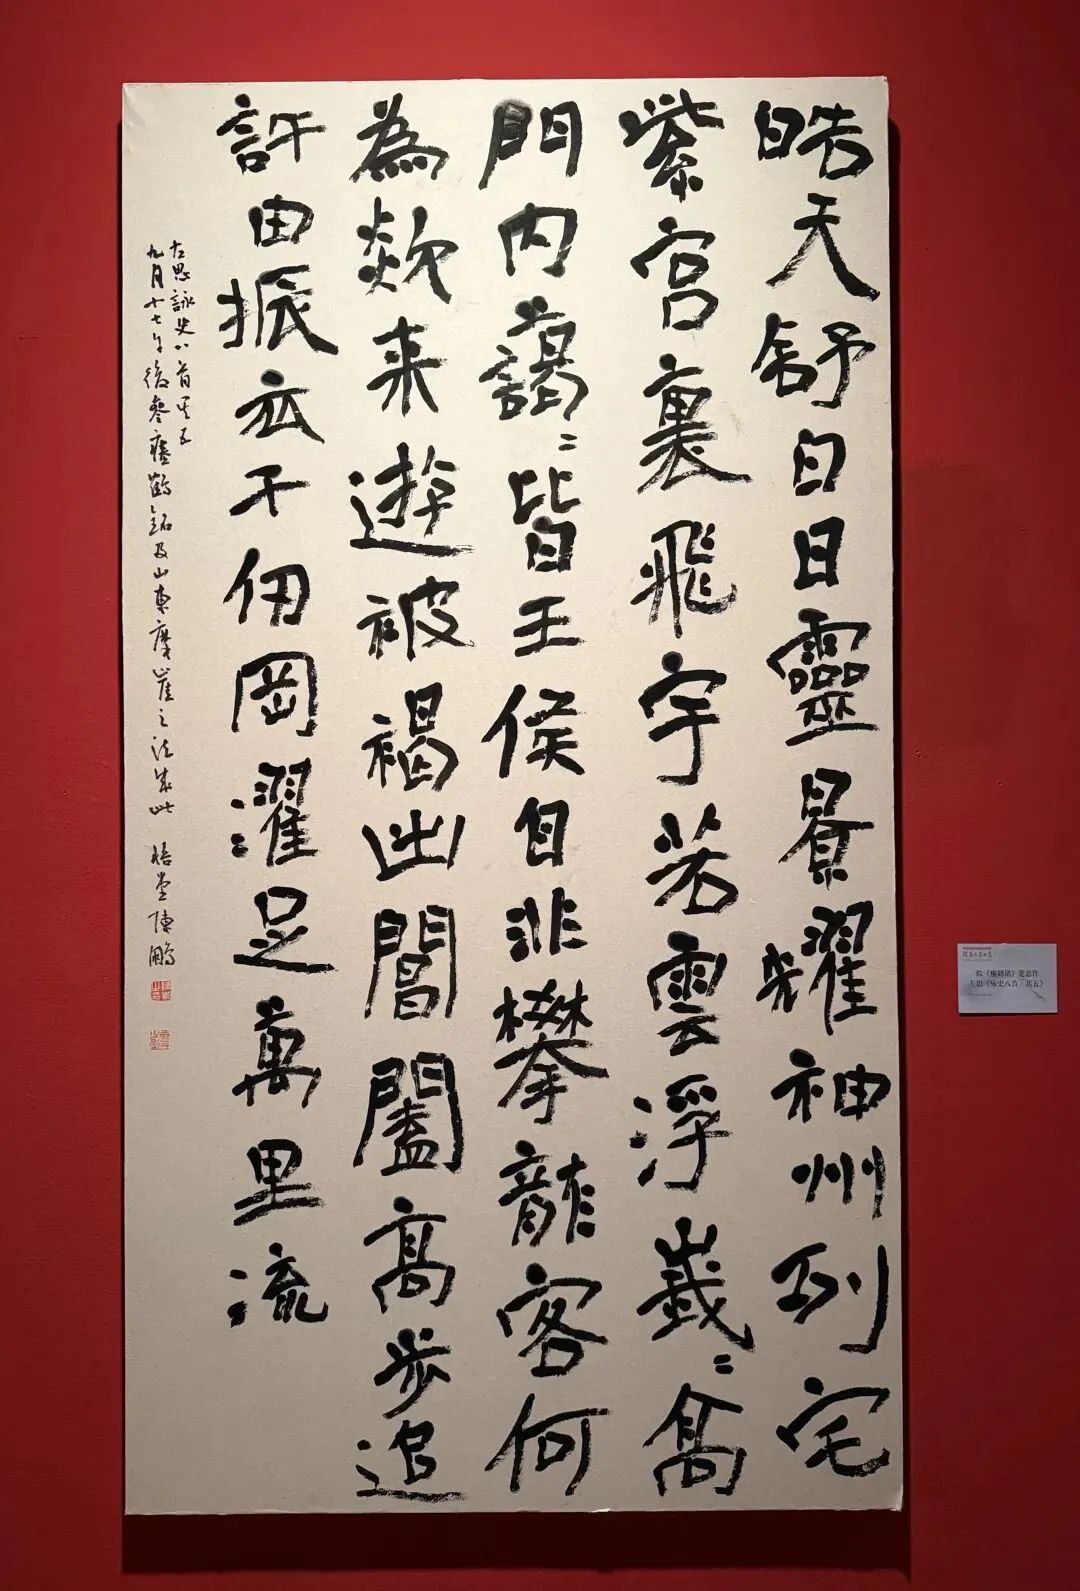 皓天舒白日靈景耀神州列宅
紫宮裏飛宇若雲浮峩〻高
門内藹〻皆王侯自非攀龍客何
為欻来遊被褐出閶闔高步追
許由振衣千仞岡濯足萬里流
左思詠史八首其五
九月十七午後參瘞鶴銘及山東摩崖之法成此 堂陳鵬
拟《瘗鹤铭》笔意作
左思《咏史八首·其五》